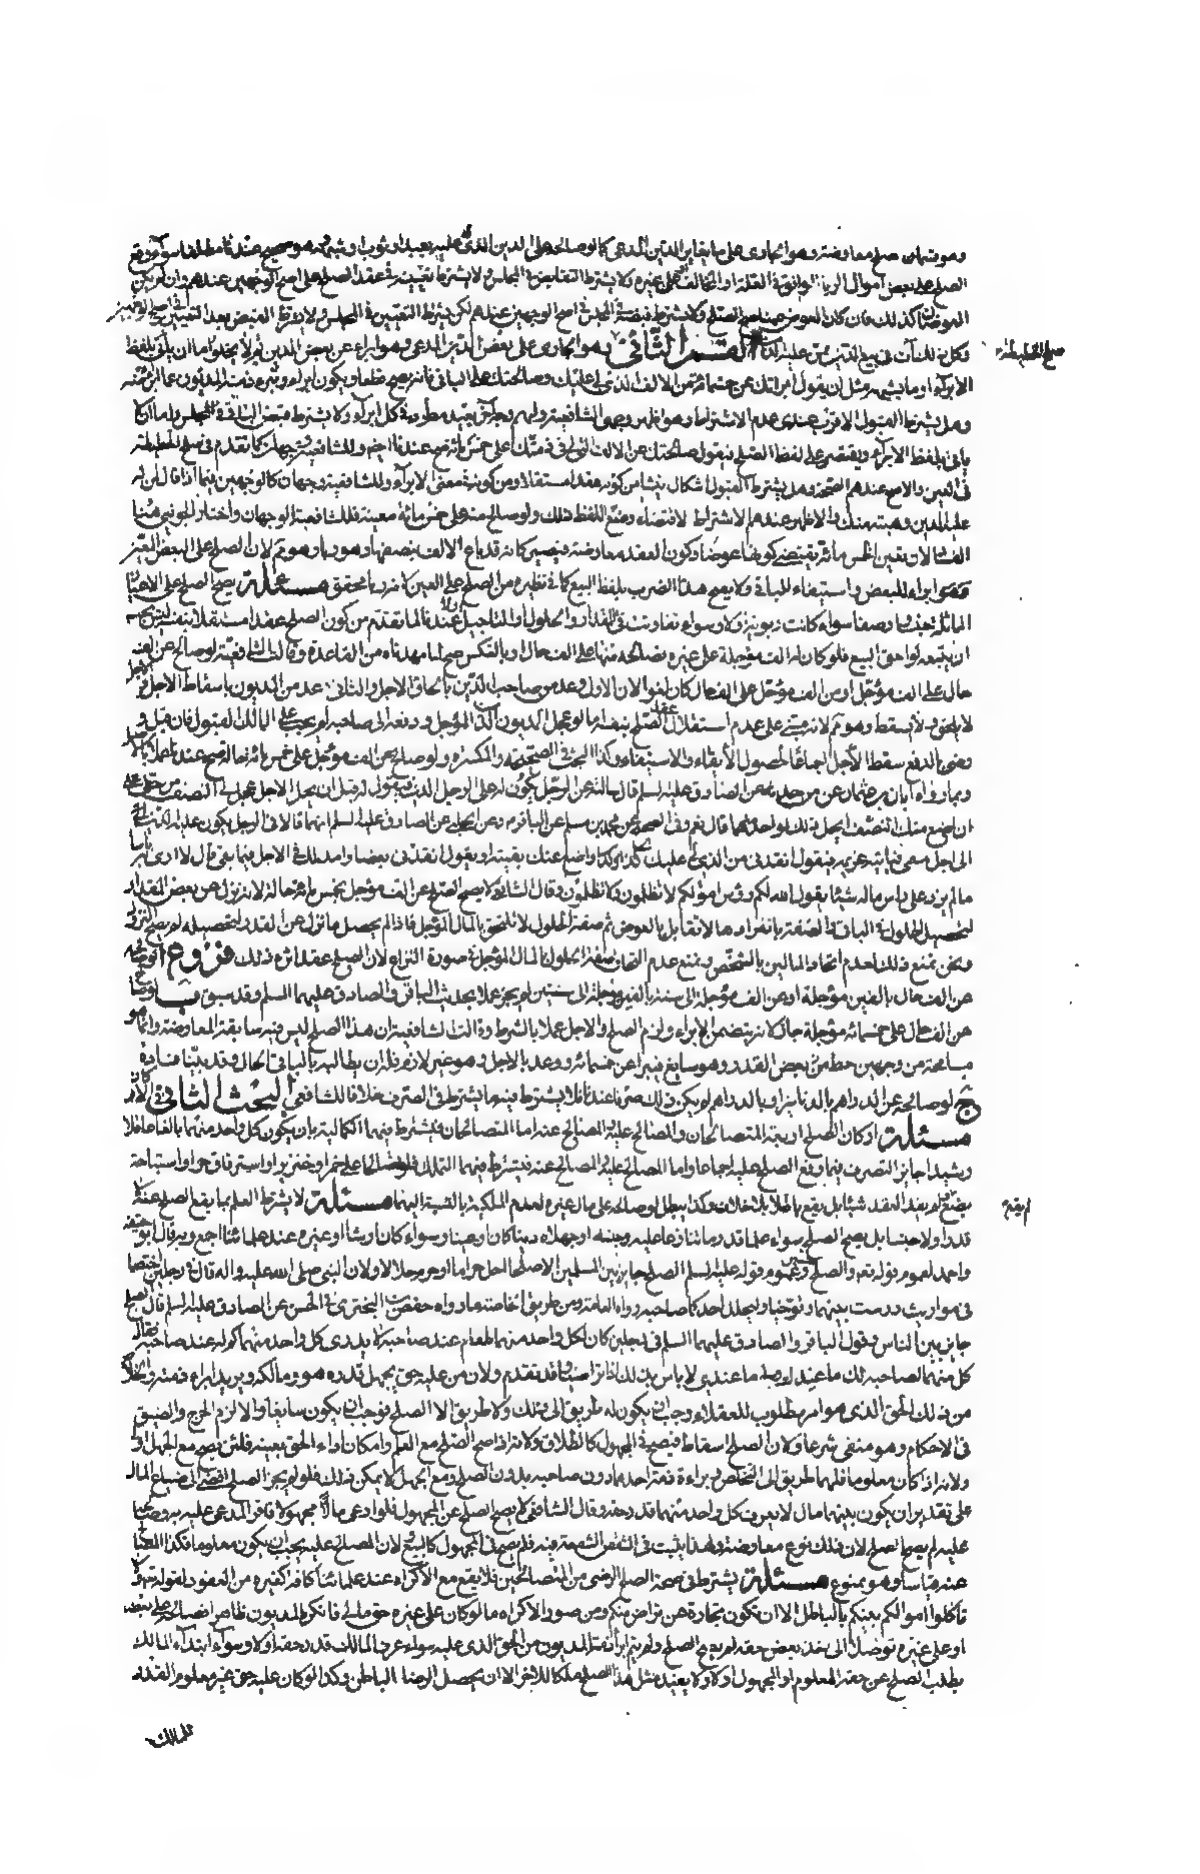 وهو قسمان صلح معاوضة وهو الجاري على ما يغاير الدين المدعى كما لو صالحه على الدين الذي عليه بعبد او ثوب او شبهه وهو صحيح عندنا مطلقا سواء وقع
الصلح على بعض اموال الربا الموافق في العلة او المخالف على غيره ولا يشترط التقابض في المجلس ولا يشترط تعيينه في عقد الصلح على اصح الوجهين عندهم وان لم يكن
العوضان كذلك فان كان العوض عينا صح الصلح ولا يشترط قبضه في المجلس في اصح الوجهين عندهم لكن يشترط التعيين في المجلس ولا يشترط القبض بعد التعيين في اصح الوجهين
وكل ذلك آت في بيع الدين ممن عليه الدين القسم الثاني ما هو الجاري على بعض الدين المدعى وهو ابراء عن بعض الدين ثم لا يخلو اما ان يأتي بلفظ
الابراء او ما يشبهه مثل ان يقول ابرأتك عن خمسمائة من الالف الذي لي عليك وصالحتك على الباقي فانه يصح قطعا ويكون ابراء وتبرء ذمة المديون عما ابرأ منه
وهل يشترط القبول الاقرب عندي عدم الاشتراط وهو اظهر وجهي الشافعية ولهم وجه آخر بعيد مطرد في كل ابراء ولا يشترط قبض الباقي في المجلس واما ان لا
يأتي بلفظ الابراء ويقتصر على لفظ الصلح فيقول صالحتك عن الالف التي لي في ذمتك على خمسمائة صح عندنا ايضا وللشافعية وجهان كما تقدم في صلح الحطيطة
في العين والاصح عندهم الصحة وهل يشترط القبول اشكال ينشأ من كونه عقدا مستقلا ومن كونه في معنى الابراء وللشافعية وجهان كالوجهين فيما اذا قال لمن له
عليه الدين وهبته منك والاظهر عندهم الاشتراط لاقتضاء وضع اللفظ ذلك ولو صالح منه على خمسمائة معينة فللشافعية الوجهان واختار الجويني هنا
الفساد لان تعيين الخمسمائة يقتضي كونها عوضا وكون العقد معاوضة فيصير كانه قد باع الالف بنصفها وهو ربا وهو ممنوع لان الصلح على البعض المعين
ابراء للبعض واستيفاء للباقي ولا يصح هذا الضرب بلفظ البيع كما في نظيره من الصلح على العين كانه ربا محقق مسئلة يصح الصلح على الاعيان
المماثلة جنسا ووصفا سواء كانت ربوية او لا وسواء تفاوتت في المقدار والحلول والتأجيل او لا عندنا لما تقدم من كون الصلح عقدا مستقلا بنفسه ليس يجب
ان يتبعه لواحق البيع فلو كان له الف مؤجلة على غيره فصالحه منها على الف حال او بالعكس صح لما مهدناه من القاعدة وقالت الشافعية لو صالح عن الف
حال على الف مؤجل او من الف مؤجل على الف حال كان لغوا لان الاول وعد من صاحب الدين بالحاق الاجل والثاني وعد من المديون باسقاط الاجل والاجل
لا يلحق ولا يسقط وهو ممنوع لانه مبني على عدم استقلال عقد الصلح بنفسه اما لو عجل المديون الدين المؤجل ودفعه الى صاحبه لم يجب على المالك القبول فان قبل و
رضي بالدفع سقط الاجل اجماعا لحصول الايفاء والاستيفاء وكذا البحث في الصحيح والمكسرة ولو صالح عن الف مؤجل على خمسمائة حالة صح عندنا
وبما رواه ابان بن عثمان عمن حدثه عن الصادق عليه السلم قال سألته عن الرجل يكون له على الرجل الدين فيقول له قبل ان يحل الاجل عجل لي النصف من حقي على
ان اضع عنك النصف ايحل ذلك لواحد منهما قال نعم وفي الصحيح عن محمد بن مسلم عن الباقر وعن الحلبي عن الصادق عليه السلم انهما قالا في الرجل يكون عليه الدين
الى اجل مسمى فيأتيه غريمه فيقول انقدني من الذي لي عليك كذا وكذا واضع عنك بقيته او يقول انقدني بعضا وامد لك في الاجل فيما بقي قال لا ارى به بأسا
ما لم يزد على رأس ماله شيئا يقول الله لكم رؤس اموالكم لا تظلمون ولا تظلمون وقال الشافعي لا يصح الصلح عن الف مؤجل بخمسمائة حالة لانه نزل عن بعض المقدار
لتحصيل الحلول في الباقي والصفة بانفرادها لا تقابل بالعوض ثم صفة الحلول لا تلتحق بالمال المؤجل فاذا لم يحصل ما نزل عن القدر لتحصيله لم يصح النزول
ونحن نمنع ذلك لعدم اتحاد المالين بالشخص ونمنع عدم التحاق صفة الحلول بالمال المؤجل في صورة النزاع لان الصلح عقد اثره ذلك فروع ا لو صالحه
عن الف حال بالفين مؤجلة او عن الف مؤجلة الى سنة بالفين مؤجلة الى سنتين لم يجز عملا بحديث الباقر والصادق عليهما السلم وقد سبق ب لو صالح
عن الف حال على خمسمائة مؤجلة جاز لانه يتضمن الابراء ولزم الصلح والاجل عملا بالشرط وقالت الشافعية ان هذا الصلح ليس فيه سابقة المعاوضة وانما هو
مسامحة من وجهين حط من بعض القدر وهو سايغ فيبرأ عن خمسمائة ووعد بالاجل وهو غير لازم فله ان يطالبه بالباقي في الحال وقد بينا فساده
ج لو صالحه عن الدراهم بالدنانير او بالدراهم لم يكن ذلك صرفا عندنا فلا يشترط فيه ما يشترط في الصرف خلافا للشافعي البحث الثاني في الاركان
مسئلة اركان الصلح اربعة المتصالحان والمصالح عليه والمصالح عنه اما المتصالحان فيشترط فيهما الكمالية بان يكون كل واحد منهما بالغا عاقلا
رشيدا جايز التصرف فيما وقع الصلح عليه اجماعا واما المصالح عليه والمصالح عنه فيشترط فيهما التملك فلو تصالحا على خمر او خنزير او استرقاق حر او استباحة
بضع لم يفد العقد شيئا بل يقع باطلا بلا خلاف وكذا يبطل لو صالحه على مال غيره لعدم الملكية بالنسبة اليهما مسئلة لا يشترط العلم بما يقع الصلح عنه لا
قدرا ولا جنسا بل يصح الصلح سواء علما قدر ما تنازعا عليه وجنسه او جهلاه دينا كان او عينا وسواء كان ارثا او غيره عند علمائنا اجمع وبه قال ابو حنيفة
واحمد لعموم قوله تع والصلح خير وعموم قوله عليه السلم الصلح جايز بين المسلمين الا صلحا احل حراما او حرم حلالا ولان النبي صلى الله عليه واله قال في رجلين اختصما
في مواريث درست بينهما وتوخيا وليحلل احدكما صاحبه رواه العامة ومن طريق الخاصة ما رواه حفص بن البختري في الحسن عن الصادق عليه السلم قال الصلح
جايز بين الناس وقول الباقر والصادق عليهما السلم في رجلين كان لكل واحد منهما طعام عند صاحبه لا يدري كل واحد منهما كم له عند صاحبه فقال
كل منهما لصاحبه لك ما عندك ولي ما عندي لا بأس بذلك اذا تراضيا وقد تقدم ولان من عليه حق يجهل قدره هو ومالكه ويريد ابراء ذمته والخلاص
من ذلك الحق الذي هو امر مطلوب للعقلاء وجب ان يكون له طريق الى ذلك ولا طريق الا الصلح فوجب ان يكون سايغا والا لزم الحرج والضيق
في الاحكام وهو منفي شرعا ولان الصلح اسقاط فيصح في المجهول كالطلاق ولانه اذا صح الصلح مع العلم وامكان اداء الحق بعينه فلئن يصح مع الجهل اولى
ولانه اذا كان معلوما فلهما طريق الى التخلص وبراءة ذمة احدهما دون صاحبه بدون الصلح ومع الجهل لا يمكن ذلك فلو لم يجز الصلح افضى الى ضياع المال
على تقدير ان يكون بينهما مال لا يعرف كل واحد منهما قدر حقه وقال الشافعي لا يصح الصلح عن المجهول فلو ادعى مالا مجهولا فاقر المدعى عليه به وصالحه
عليه لم يصح الصلح لان ذلك نوع معاوضة ولهذا يثبت في الشقص الشفعة فيه فلم يصح في المجهول كالبيع ولان المصالح عليه يجب ان يكون معلوما فكذا المصالح
عنه قياسا وهو ممنوع مسئلة يشترط في صحة الصلح الرضى من المتصالحين فلا يقع مع الاكراه عند علمائنا كافة كغيره من العقود لقوله تع ولا
تأكلوا اموالكم بينكم بالباطل الا ان تكون تجارة عن تراض منكم ومن صور الاكراه ما لو كان على غيره حق مالي فانكره المديون ظاهرا فصالحه على بعضه
او على غيره توصلا الى اخذ بعض حقه لم يصح الصلح ولم يبرأ ذمة المديون من الحق الذي عليه سواء عرف المالك قدر حقه او لا وسواء ابتداء المالك
بطلب الصلح عن حقه المعلوم او المجهول او لا ولا يفيد مثل هذا الصلح ملكا للآخر الا ان يحصل الرضا الباطن وكذا لو كان عليه حق غير معلوم القدر
للمالك
صلح الحطيطة
لم يقع